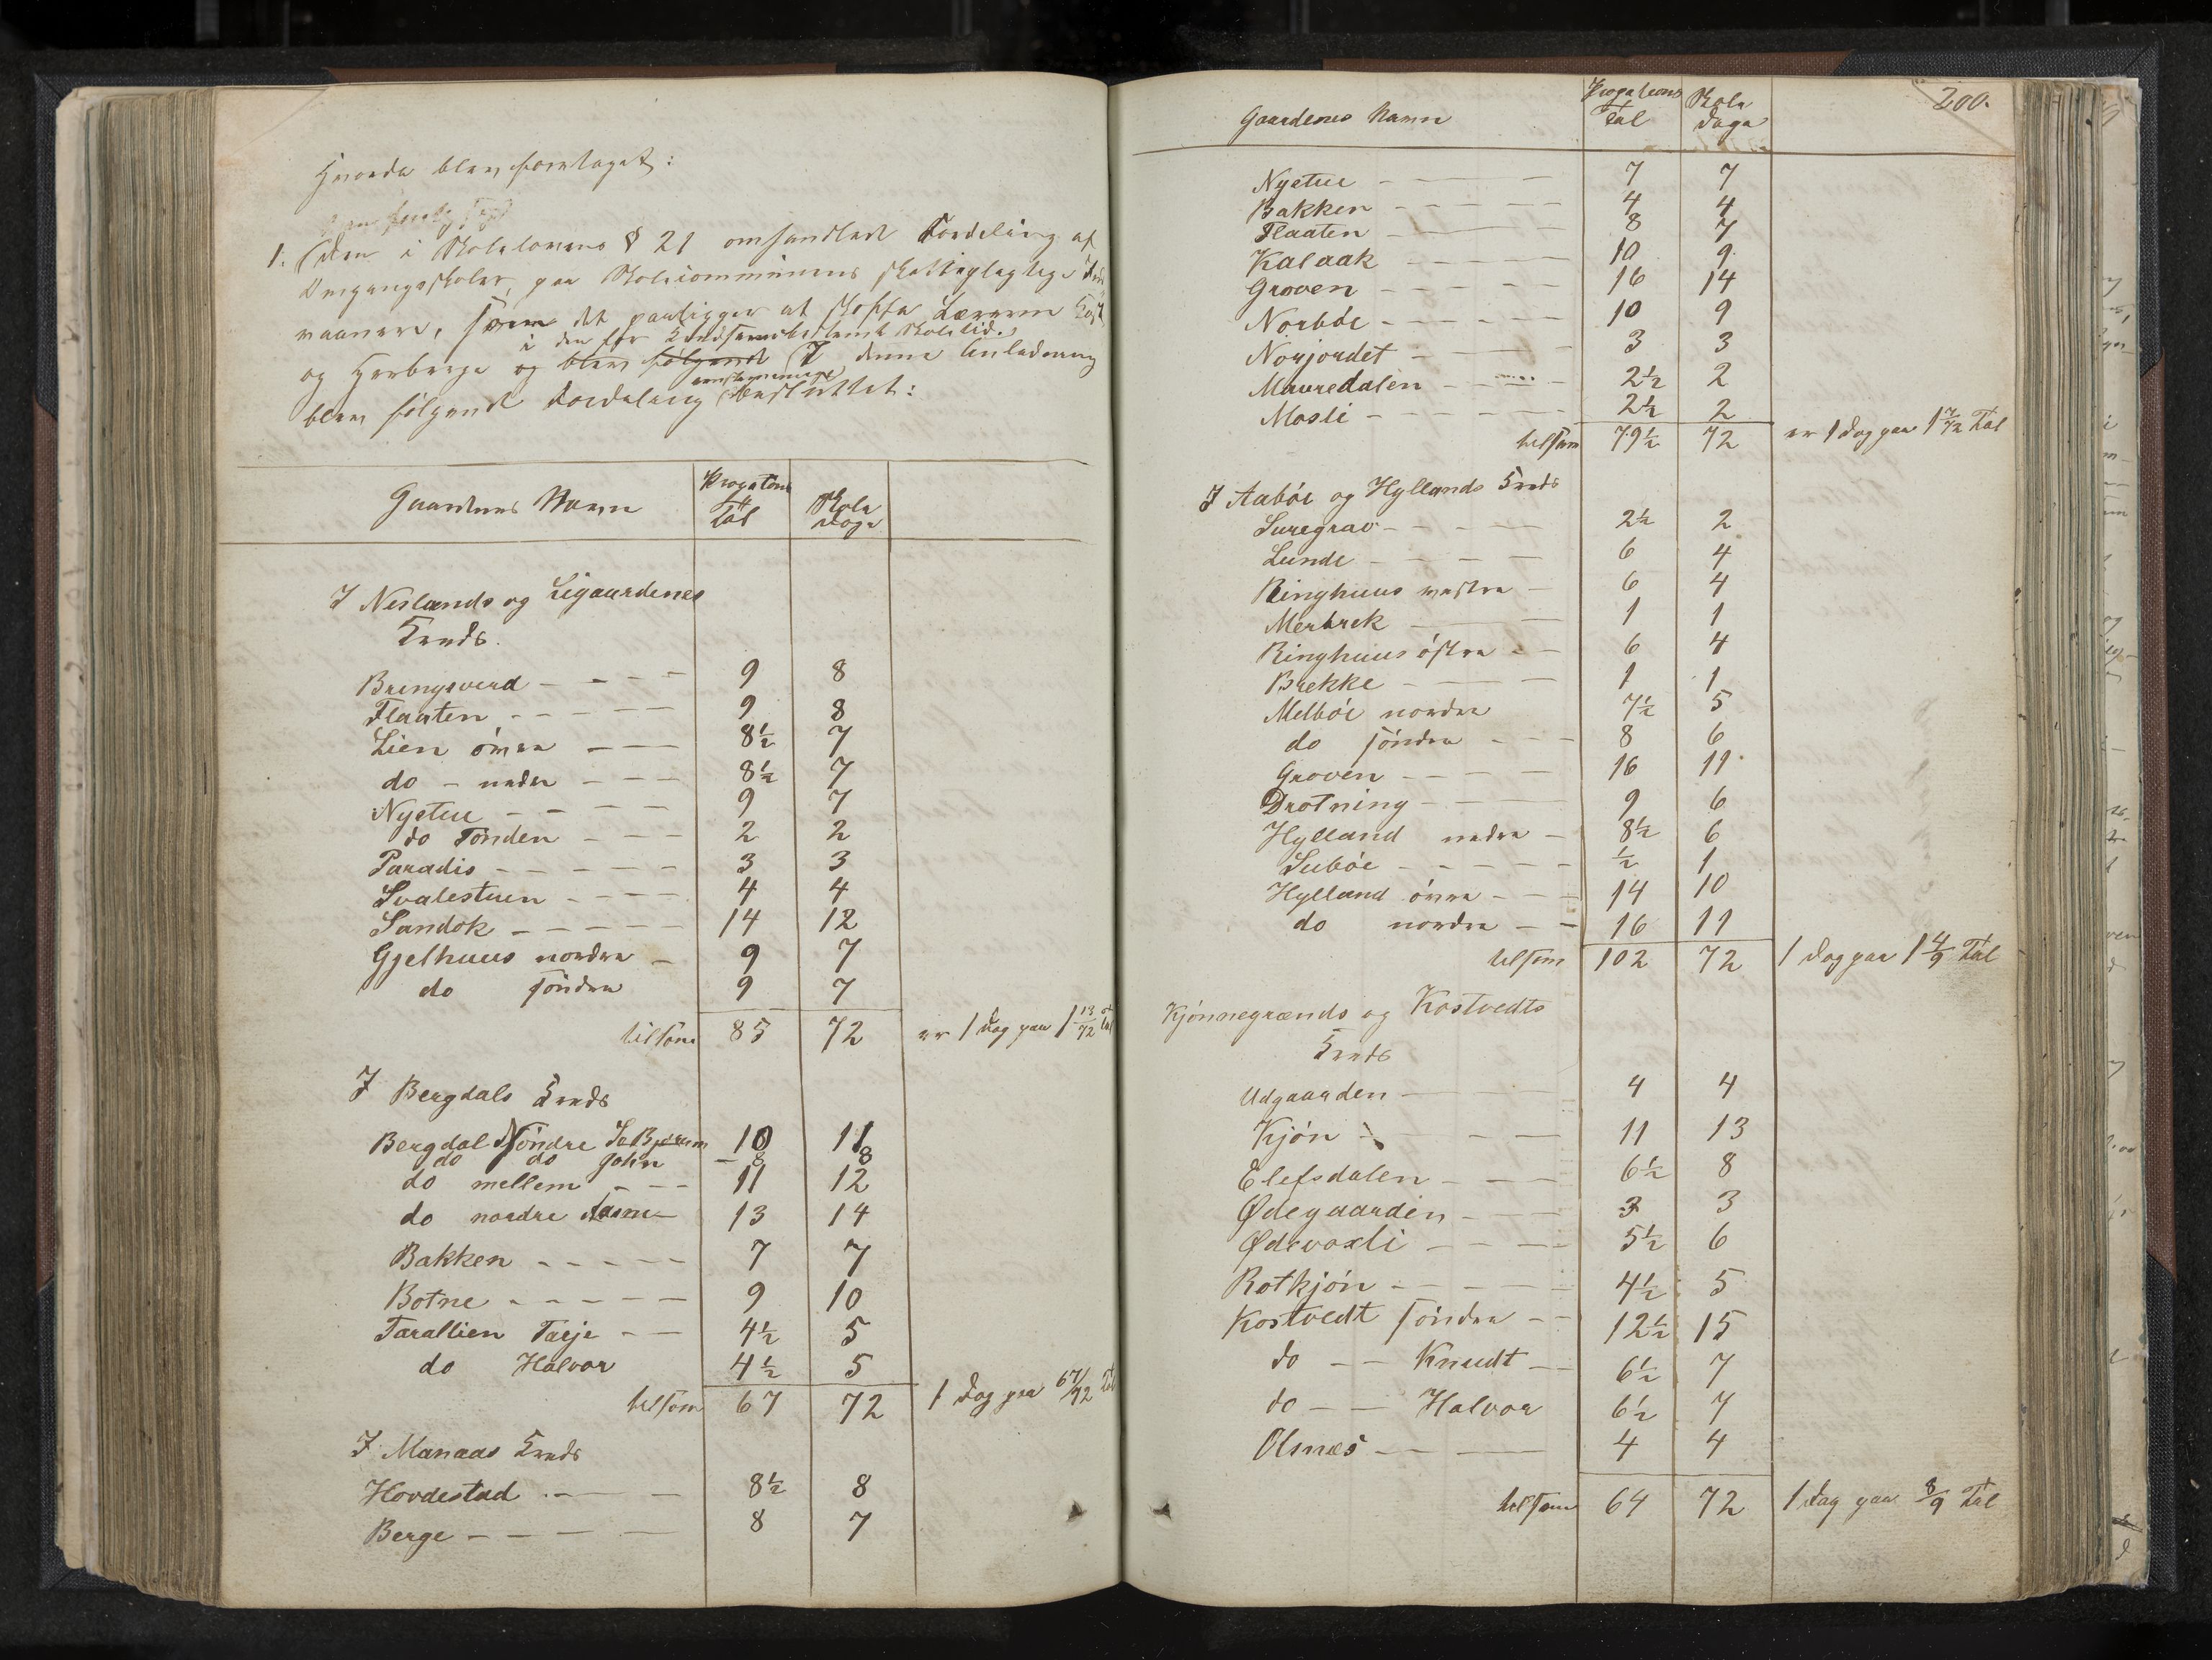 Hvorda blev foretaget:
1. Den i Skolelovens § 21 omhandlede Fordeling af
Omgangsskoler, paa Skolecommunens skattepligtige
vaanere, som det paaligger at skaffe Læreren Kost
i den for Kredsene bestemt Skoletid.
og Herberge og blev følgende I denne Anledning
eenstemmigt
blev følgende Fordeling besluttet:
Gaardenes Navn
Progations
tal
Skole
dage
I Neslands og Ligaardenes
Kreds.
Bringsverd - - - - 9 8
Flaaten - - - - 9 8
Lien övre - - - 8½ 7
do - nedre - - - 8½ 7
Nystue - - - - 9 7
do Tönden - - - 2 2
Paradis - - - - - 3 3
Svalestuen - - - - 4 4
Sandok - - - - - 14 12
Gjelhuus nordre - 9 7
do söndre 9 7
tilsam 85 72 er 1 dag paa 1 13/72 tal
I Bergdals Kreds
Bergdal Söndre 10 11
do do John - 8 8
do mellem - - - 11 12
do nordre 13 14
Bakken - - - - - 7 7
Botne - - - - - 9 10
Tarallien Tarje - - 4½ 5
do Halvor 4½ 5
tilsam 67 72 1 Dag paa 67/72 tal
I Manaas Kreds
Hovdestad - - - 8½ 8
Berge - - - - 8 7
200.
Gaardenes Navn
Progations
tal
Skole
dage
Nystue - - - 7 7
Bakken - - - - - 4 4
Flaaten - - - - 8 7
Kalaak - - - - 10 9
Groven - - - - - 16 14
Norböe - - - - - 10 9
Norjordet - - - - 3 3
Mauredalen - - - - 2½ 2
Mosli - - - - - - 2½ 2
tilsam 79½ 72 er 1 dag paa 1 7/72 Tal
I Aaböe og Hyllands Kreds
Suregrav - - - - 2½ 2
Lunde - - - - - 6 4
Ringhuus vestre - 6 4
Merbrek - - - 1 1
Ringhuus östre - - 6 4
Brekke - - - - 1 1
Melböe nordre 7½ 5
do söndre - - - 8 6
Groven - - - - - 16 11
Drotning - - - - 9 6
Hylland nedre - 8½ 6
Suböe - - - - - ½ 1
Hylland övre - - - 14 10
do nordre - - 16 11
tilsam 102 72 1 dag paa 1 4/9 Tal
Kjönnegrænds og Kostvedts
Kreds
Udgaarden - - - 4 4
Kjön - - - - 11 13
Elefsdalen - - - 6½ 8
Ødegaarden - - - 3 3
Ødevaxli - - - - 5½ 6
Rotkjön - - - - - 4½ 5
Kostvedt söndre - - 12½ 15
do - - Knudt - - 6½ 7
do - - Halvor 6½ 7
Olsnæs - - - - 4 4
tilsam 64 72 1 dag paa 8/9 Tal